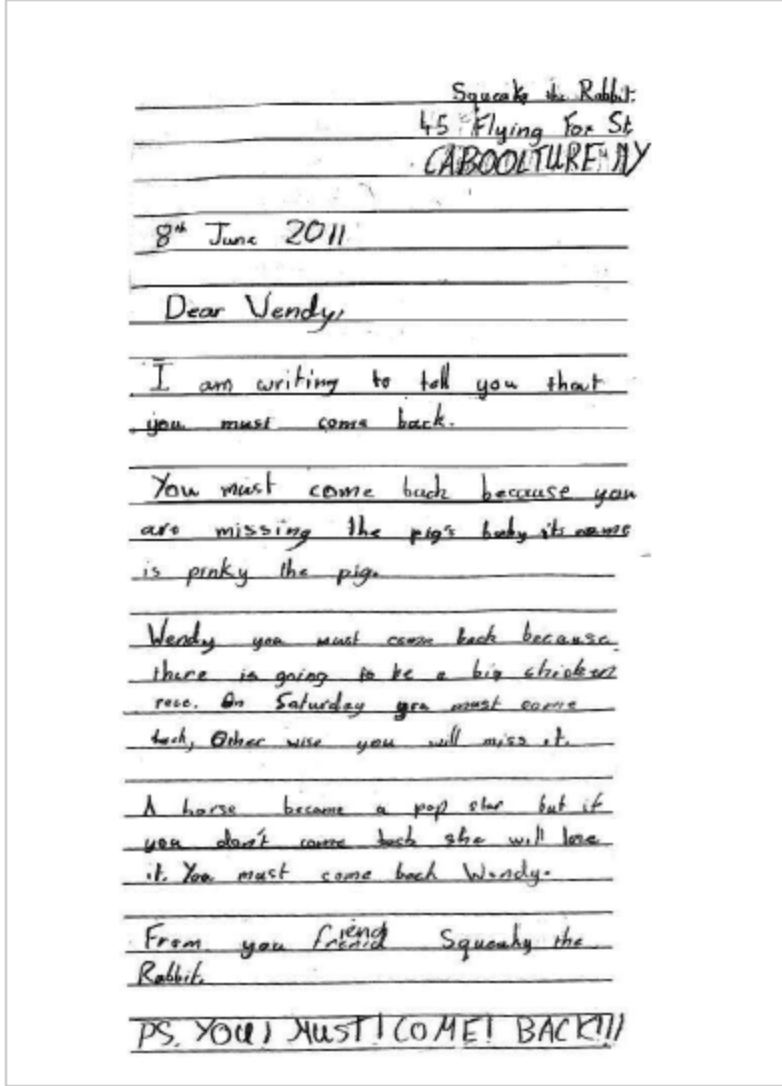 Squeaky the Rabbit.
45 Flying Fox St
CABOOLTURE NY
8th June 2011
Dear Wendy,
I am writing to tell you that
you must come back.
You must come back because you
are missing the pig's baby its name
is pinky the pig.
Wendy you must come back because
there is going to be a big chicken
race. On Saturday you must come
back, Other wise you will miss it.
A horse became a pop star but if
you don't come back she will lose
it. You must come back Wendy.
From you friend Squeaky the
Rabbit.
PS. YOU! MUST! COME! BACK!!!